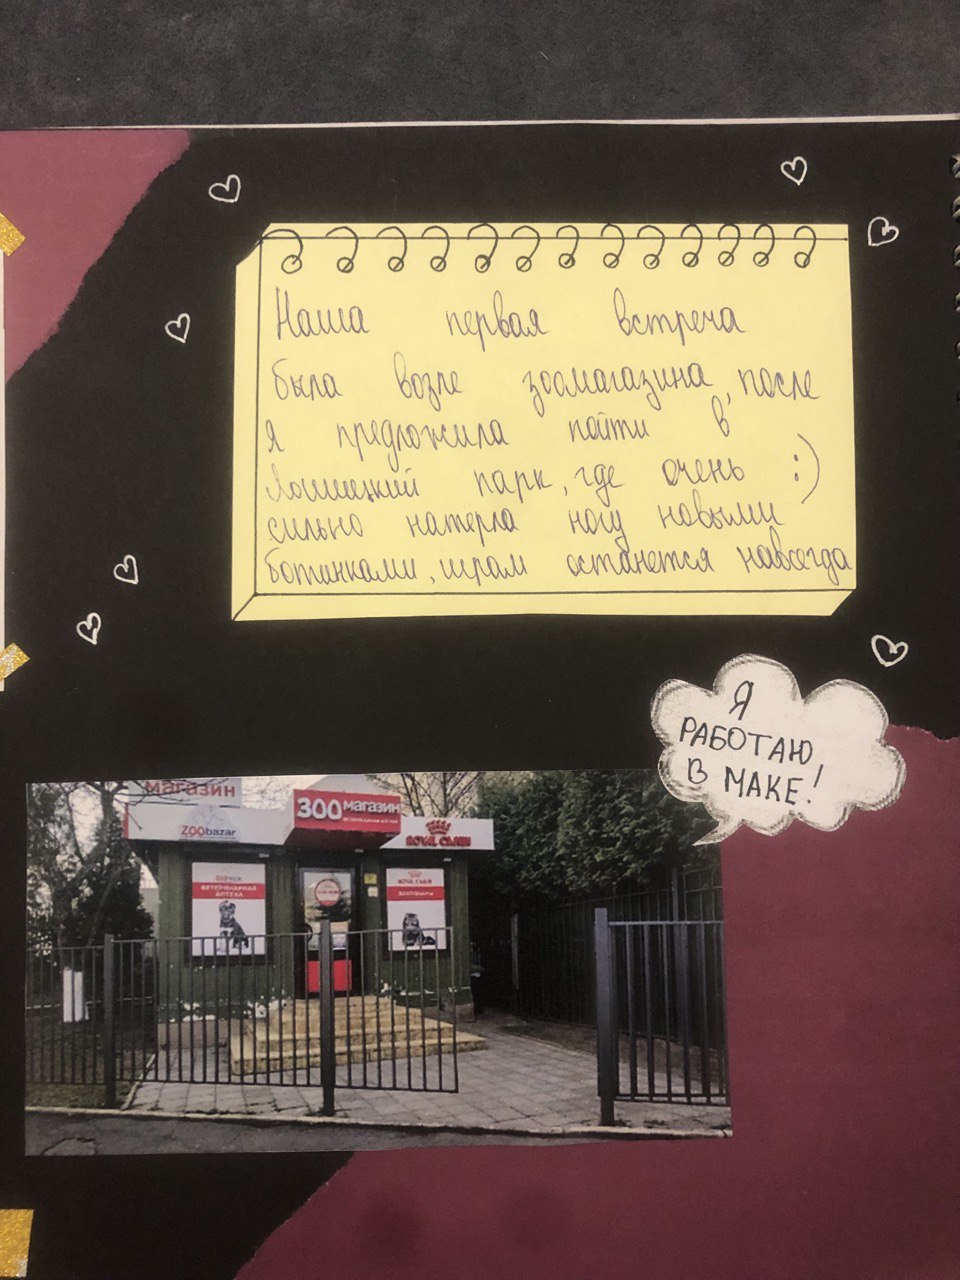 Наша первая встреча
была возле зоомагазина, после
я предложила пойти в
Лошицкий парк, где очень :)
сильно натерла ногу новыми
ботинками, шрам останется навсегда
Я
РАБОТАЮ
В МАКЕ!
магазин
ZOObazar
ЗОО магазин
ROYAL CANIN
ВЕТЕРИНАРНАЯ
АПТЕКА
ROYAL CANIN